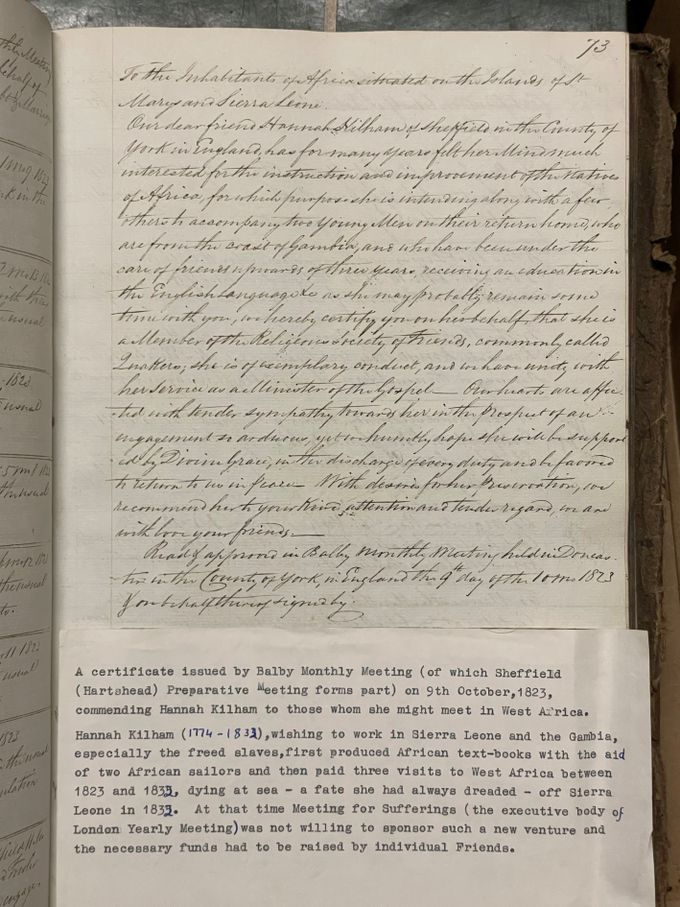 73
To the Inhabitants of Africa situated on the Islands of St
Marys and Sierra Leone.
Our dear friend Hannah Kilham of Sheffield in the County of
York in England, has for many Years felt her Mind much
interested for the instruction and improvement of the Natives
of Africa, for which purpose she is intending along with a few
others to accompany two Young Men on their return home, who
are from the coast of Gambia, and who have been under the
care of friends upwards of three Years, receiving an education in
the English Language &c as she may probably remain some
time with you, we hereby certify you on her behalf, that she is
a Member of the Religious Society of Friends, commonly called
Quakers, she is of exemplary conduct, and we have unity with
her service as a Minister of the Gospel — Our hearts are affec
ted with tender sympathy toward her in the Prospect of an
engagement so arduous, yet we humbly hope she will be support
ed by Divine Grace, in the discharge of every duty and be favored
to return to us in peace — With desires for her Preservation, we
recommend her to your Kind attention and tender regard, we are
with love your friends. —
Read & approved in Balby Monthly Meeting held in Doncas
ter in the County of York, in England the 9th day of the 10 mo 1823
& on behalf thereof signed by.
A certificate issued by Balby Monthly Meeting (of which Sheffield
(Hartshead) Preparative Meeting forms part) on 9th October,1823,
commending Hannah Kilham to those whom she might meet in West Africa.
Hannah Kilham (1774 - 1832),wishing to work in Sierra Leone and the Gambia,
especially the freed slaves,first produced African text-books with the aid
of two African sailors and then paid three visits to West Africa between
1823 and 1832, dying at sea - a fate she had always dreaded - off Sierra
Leone in 1832. At that time Meeting for Sufferings (the executive body of
London Yearly Meeting)was not willing to sponsor such a new venture and
the necessary funds had to be raised by individual Friends.